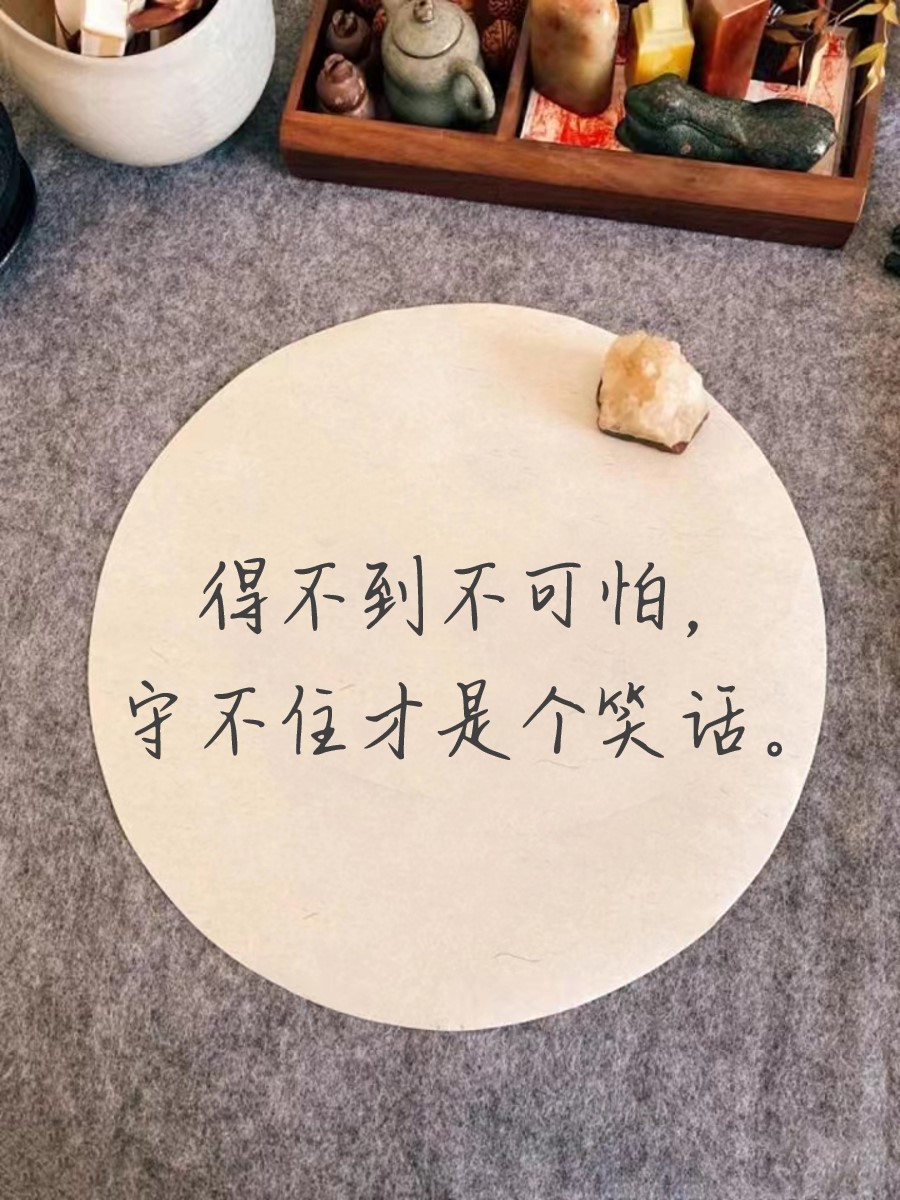 得不到不可怕,
守不住才是个笑话。